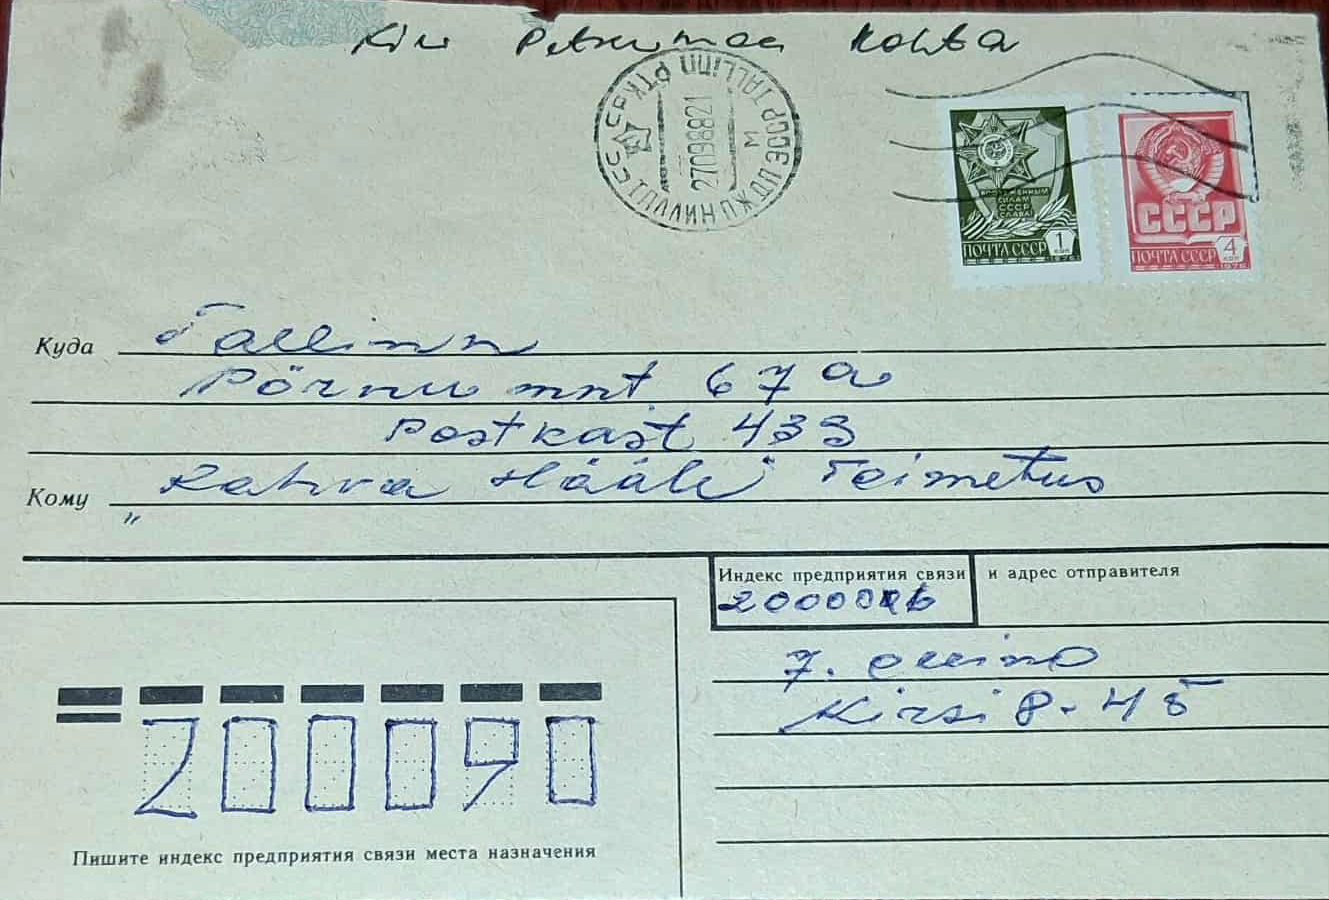 Kiri Peterimaa kohta
TALLINN PTK
ТАЛЛИНН ПЖДП ЭССР
27098821
М
ВООРУЖЕННЫМ
СИЛАМ
СССР
СЛАВА!
ПОЧТА СССР 1 КОП
1976
СССР
ПОЧТА СССР 4 КОП
1976
Куда Tallinn
Pärnu mnt 67a
Postkast 433
Кому "Rahva Hääle" Toimetus
Индекс предприятия связи и адрес отправителя
200006
Kirsi 8-45
200090
Пишите индекс предприятия связи места назначения